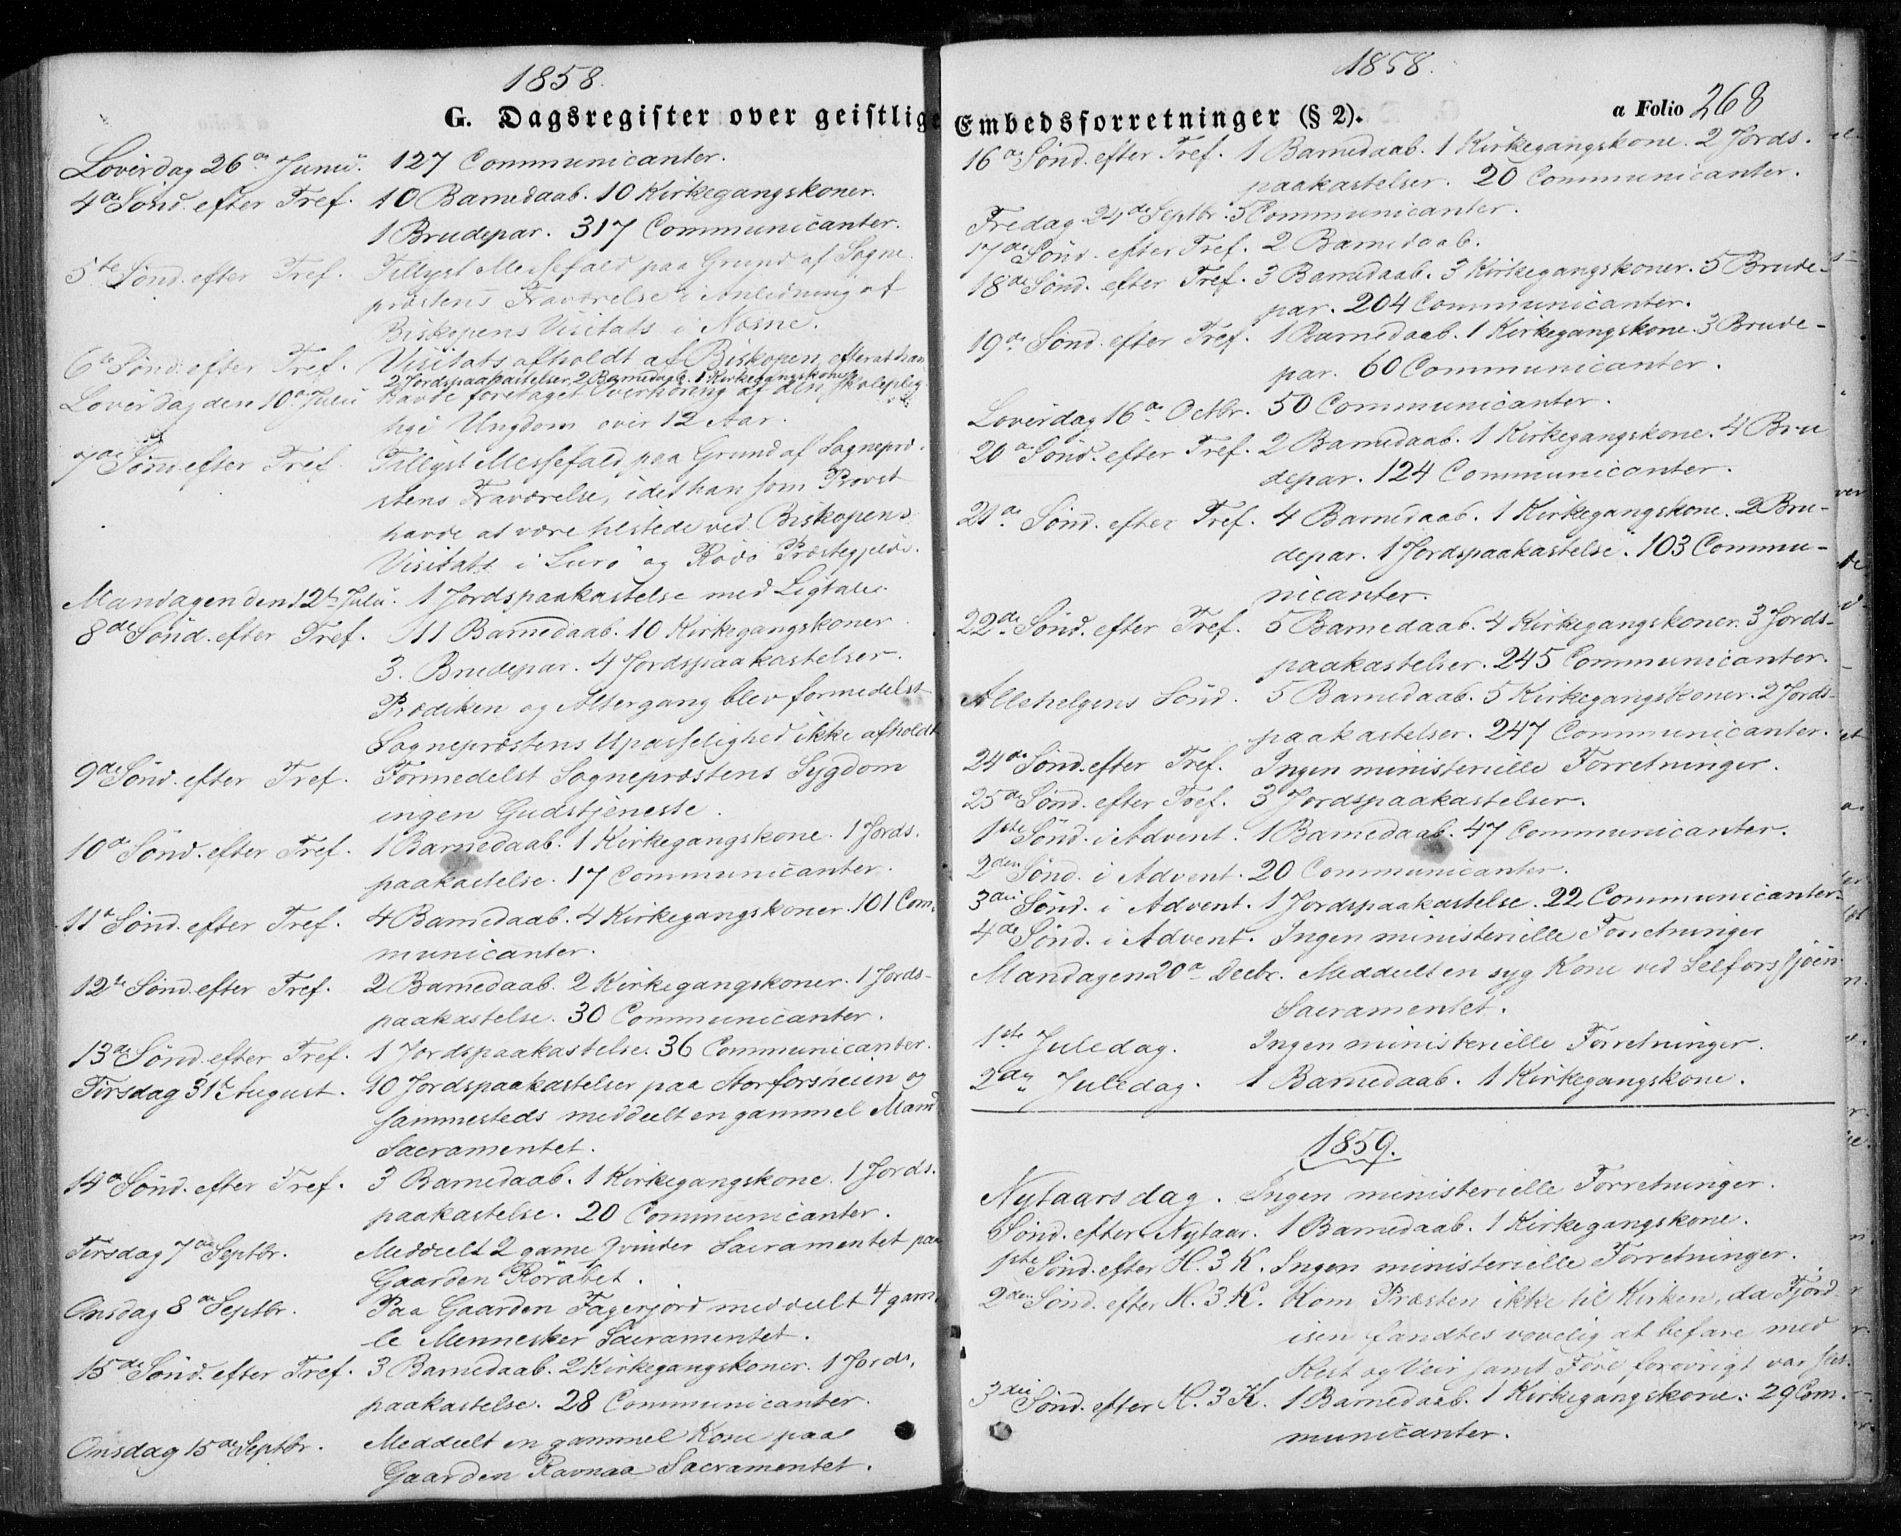 1858.
G. Dagsregister over geistlige
Løverdag 26de Junii. 127 Communicanter.
4de Sønd. efter Tref. 10 Barnedaab. 10 Kirkegangskoner.
1 Brudepar. 317 Communicanter.
5te Sønd. efter Tref. Tillyst Messefald paa Grund af Sogne-
præstens Fraværelse i Anledning af
Biskopens Visitats i Næsne.
6te Sønd. efter Tref. Visitats afholdt af Biskopen, efterat han
2 Jordspaakastelser, 2 Barnedaab. 1 Kirkegangskone
Løverdag den 10de Julii havde foretaget Overhøring af den skoleplig-
tige Ungdom over 12 Aar.
7de Sønd. efter Tref. Tillyst Messefald paa Grund af Sognepræ-
stens Fraværelse, idet han som Provst
havde at være tilstede ved Biskopens
Visitats i Lurø og Rødø Præstegjelde.
Mandagen den 12te Julii. 1 Jordspaakastelse med Ligtale.
8de Sønd. efter Tref. 11 Barnedaab. 10 Kirkegangskoner
3. Brudepar. 4 Jordspaakastelser.
Prædiken og Altergang blev formedelst
Sognepræstens Upasselighed ikke afholdt
9de Sønd. efter Tref. Formedelst Sognepræstens Sygdom
ingen Gudstjeneste.
10de Sønd. efter Tref. 1 Barnedaab. 1 Kirkegangskone. 1 Jords-
paakastelse. 17 Communicanter.
11te Sønd. efter Tref. 4 Barnedaab. 4 Kirkegangskoner. 101 Com-
municanter.
12te Sønd. efter Tref. 2 Barnedaab. 2 Kirkegangskoner. 1 Jords-
paakastelse. 30 Communicanter.
13de Sønd. efter Tref. 1 Jordspaakastelse. 36 Communicanter.
Tirsdag 31te August. 10 Jordspaakastelser paa Storforsheien og
sammesteds meddeelt en gammel Mand
Sacramentet.
14de Sønd. efter Tref. 3 Barnedaab. 1 Kirkegangskone. 1 Jords-
paakastelse. 20 Communicanter.
Tirsdag 7de Septbr. Meddeelt 2 gamle Qvinder Sacramentet paa
Gaarden Røråbet.
Onsdag 8de Septbr. Paa Gaarden Fagerjord meddeelt 4 gam-
le Mennesker Sacramentet.
15de Sønd. efter Tref. 3 Barnedaab. 2 Kirkegangskoner. 1 Jords-
paakastelse. 28 Communicanter.
Onsdag 15de Septbr. Meddeelt en gammel Kone paa
Gaarden Ravnaa Sacramentet.
1858.
Embedsforretninger (§ 2).
a Folio 268
16de Sønd. efter Tref. 1 Barnedaab. 1 Kirkegangskone. 2 Jords-
paakastelser. 20 Communicanter.
Fredag 24de Septbr. 5 Communicanter.
17de Sønd. efter Tref. 2 Barnedaab.
18de Sønd. efter Tref. 3 Barnedaab. 3 Kirkegangskoner. 5 Brude-
par. 204 Communicanter.
19de Sønd. efter Tref. 1 Barnedaab. 1 Kirkegangskone. 3 Brude-
par. 60 Communicanter.
Løverdag 16de Octbr. 50 Communicanter.
20de Sønd. efter Tref. 2 Barnedaab. 1 Kirkegangskone. 4 Bru
depar. 124 Communicanter.
21de Sønd. efter Tref. 4 Barnedaab. 1 Kirkegangskone. 2 Bru-
depar. 1 Jordspaakastelse. 103 Commu-
nicanter.
22de Sønd. efter Tref. 5 Barnedaab. 4 Kirkegangskoner. 3 Jords-
paakastelser. 245 Communicanter.
Allehelgens Sønd. 5 Barnedaab. 5 Kirkegangskoner. 2 Jords-
paakastelser. 247 Communicanter.
24de Sønd. efter Tref. Ingen ministerielle Forretninger.
25de Sønd. efter Tref. 3 Jordspaakastelser.
1ste Sønd. i Advent. 1 Barnedaab. 47 Communicanter.
2den Sønd. i Advent. 20 Communicanter.
3die Sønd. i Advent. 1 Jordspaakastelse. 22 Communicanter.
4de Sønd. i Advent. Ingen ministerielle Forretninger
Mandagen 20de Decbr. Meddeelt en syg Kone ved Selforssjøen
Sacramentet.
1ste Juledag. Ingen ministerielle Forretninger.
2den Juledag. 1 Barnedaab. 1 Kirkegangskone.
1859.
Nytaarsdag. Ingen ministerielle Forretninger.
Sønd. efter Nytaar. 1 Barnedaab. 1 Kirkegangskone.
1ste Sønd. efter H. 3 K. Ingen ministerielle Forretninger.
2den Sønd. efter H. 3 K. Kom Præsten ikke til Kirken, da Fjord-
isen fandtes vovelig at befare med
Hest og Veir samt Føre forøvrigt var
3die Sønd. efter H. 3 K. 1 Barnedaab. 1 Kirkegangskone. 29 Com-
municanter.